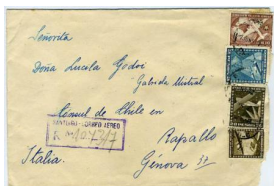 Señorita
Doña Lucila Godoi
Gabriela Mistral
Consul de Chile en
SANTIAGO - CORREO AEREO
R
Rapallo
Italia.
Génova